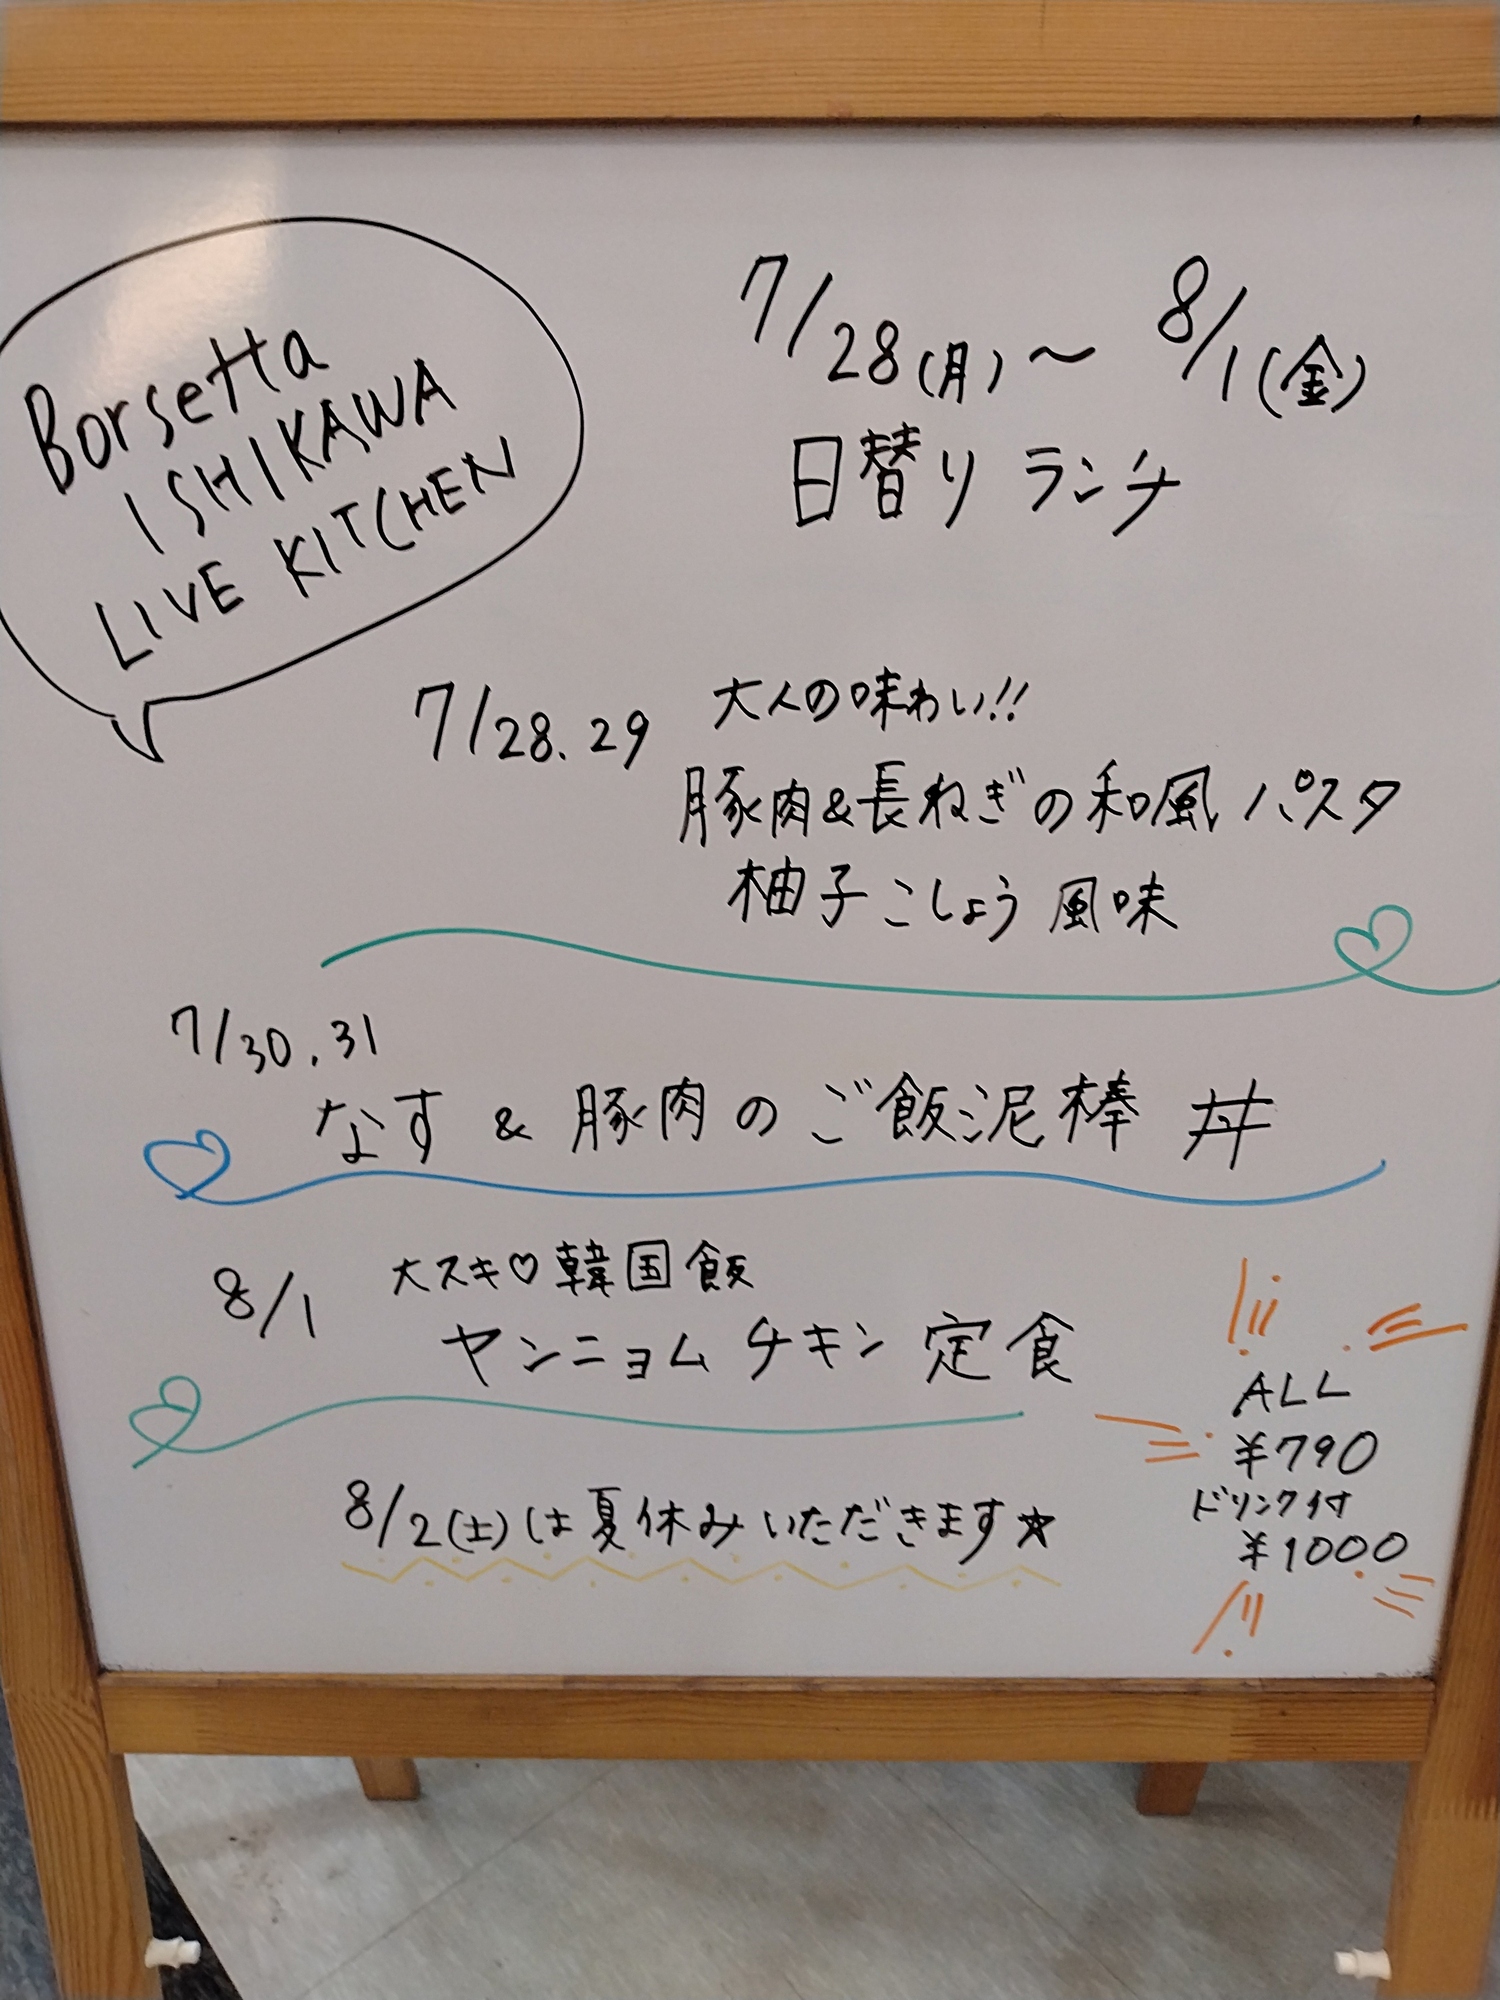 Borsetta
ISHIKAWA
LIVE KITCHEN
7/28(月)～8/1(金)
日替りランチ
7/28.29 大人の味わい!!
豚肉&長ねぎの和風パスタ
柚子こしょう風味
7/30.31
なす&豚肉のご飯泥棒丼
8/1 大スキ♡韓国飯
ヤンニョムチキン定食
8/2(土)は夏休みいただきます☆
ALL
¥790
ドリンク付
¥1000